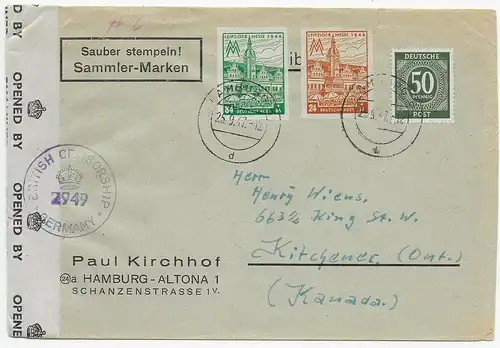 Sauber stempeln!
Sammler-Marken
LEIPZIGER MESSE 1946
84 DEUTSCHE POST 84
LEIPZIGER MESSE 1946
24 DEUTSCHE POST 24
DEUTSCHE
50
PFENNIG
POST
HAMBURG
d
OPENED BY
OPENED BY
OPENED BY
OPENE
BRITISH CENSORSHIP
2949
GERMANY
Herr
Henry Wiens.
663½ King St. W.
Kitchener, (Ont.)
(Kanada.)
Paul Kirchhof
24a HAMBURG-ALTONA 1
SCHANZENSTRASSE 1 V.